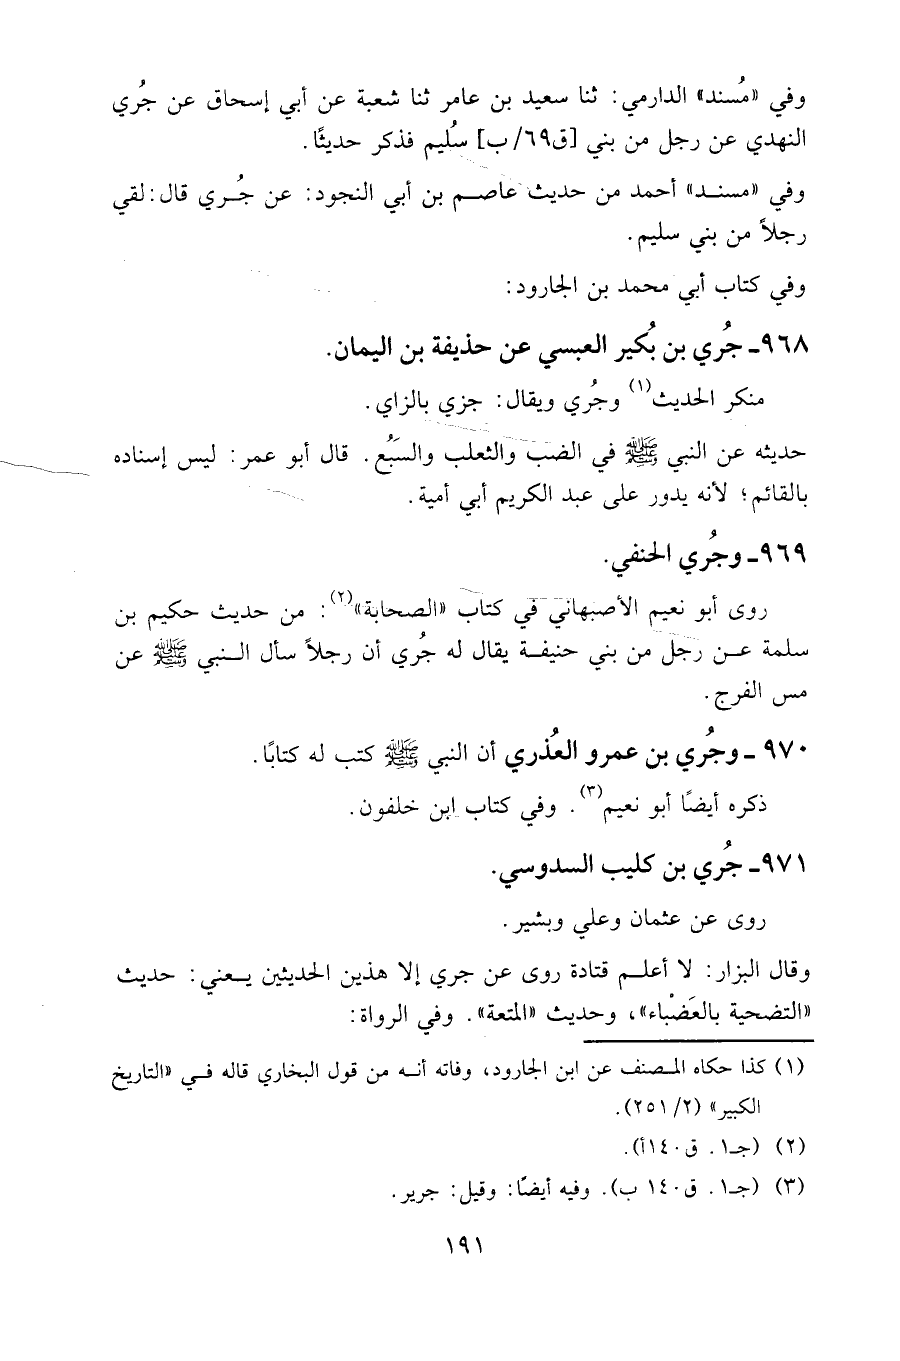 وفي «مُسند» الدارمي: ثنا سعيد بن عامر ثنا شعبة عن أبي إسحاق عن جُري
النهدي عن رجل من بني [ق٦٩/ ب] سُليم فذكر حديثًا.
وفي «مسنـد» أحمد من حديث عاصـم بن أبي النجود: عن جُـري قال: لقي
رجلاً من بني سليم.
وفي كتاب أبي محمد بن الجارود:
٩٦٨ـ جُري بن بُكير العبسي عن حذيفة بن اليمان.
منكر الحديث(١) وجُري ويقال: جزي بالزاي.
حديثه عن النبي ﷺ في الضب والثعلب والسَبُع. قال أبو عمر: ليس إسناده
بالقائم؛ لأنه يدور على عبد الكريم أبي أمية.
٩٦٩ـ وجُري الحنفي.
روى أبو نعيم الأصبهاني في كتاب «الصحابة»(٢): من حديث حكيم بن
سلمة عـن رجل من بني حنيفـة يقال له جُري أن رجلاً سأل الـنبي ﷺ عن
مس الفرج.
٩٧٠ ـ وجُري بن عمرو العُذري أن النبي ﷺ كتب له كتابًا.
ذكره أيضًا أبو نعيم(٣). وفي كتاب ابن خلفون.
٩٧١ـ جُري بن كليب السدوسي.
روى عن عثمان وعلي وبشير.
وقال البزار: لا أعلـم قتادة روى عن جري إلا هذين الحديثين يـعني: حديث
«التضحية بالعَضْباء»، وحديث «المتعة». وفي الرواة:
(١) كذا حكاه المـصنف عن ابن الجارود، وفاته أنـه من قول البخاري قاله فـي «التاريخ
الكبير» (٢/ ٢٥١).
(٢) (جـ١. ق١٤٠أ).
(٣) (جـ١. ق١٤٠ ب). وفيه أيضًا: وقيل: جرير.
١٩١